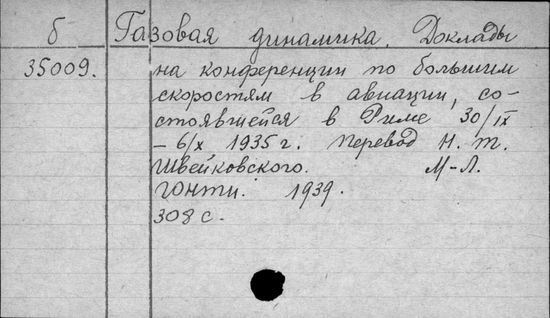 б Газовая динамика. Доклады
35009. на конференции по большим
скоростям в авиации, со-
стоявшейся в Риме 30/IX
– 6/X 1935 г. Перевод Н. т.
Швейковского. М-Л.
ГОНТИ. 1939.
308 с.